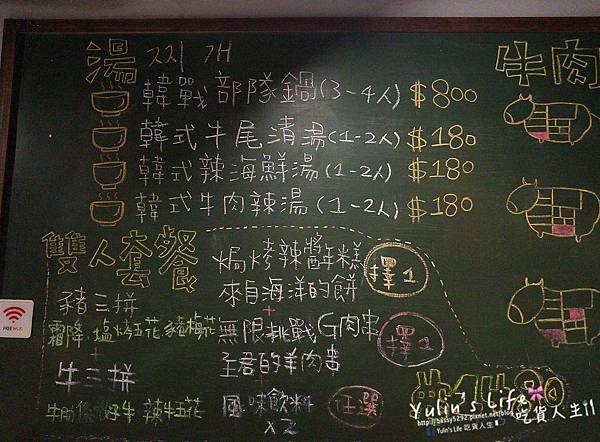 湯 찌개
韓戰部隊鍋(3-4人) $800
韓式牛尾清湯(1-2人) $180
韓式辣海鮮湯(1-2人) $180
韓式牛肉辣湯(1-2人) $180
牛肉
雙人套餐
豬三拼
霜降 塩烤五花 豬梅花
+
牛三拼
辣牛五花
焗烤辣醬年糕
來自海洋的餅
擇1
+
無限挑戰G肉串
王君的羊肉串
擇2
+
風味飲料
x2
任選
$1480
FREE Wi-Fi
Yulin's Life
吃貨人生
http://bessy5252.pixnet.net/blog
Yulin's Life 吃貨人生